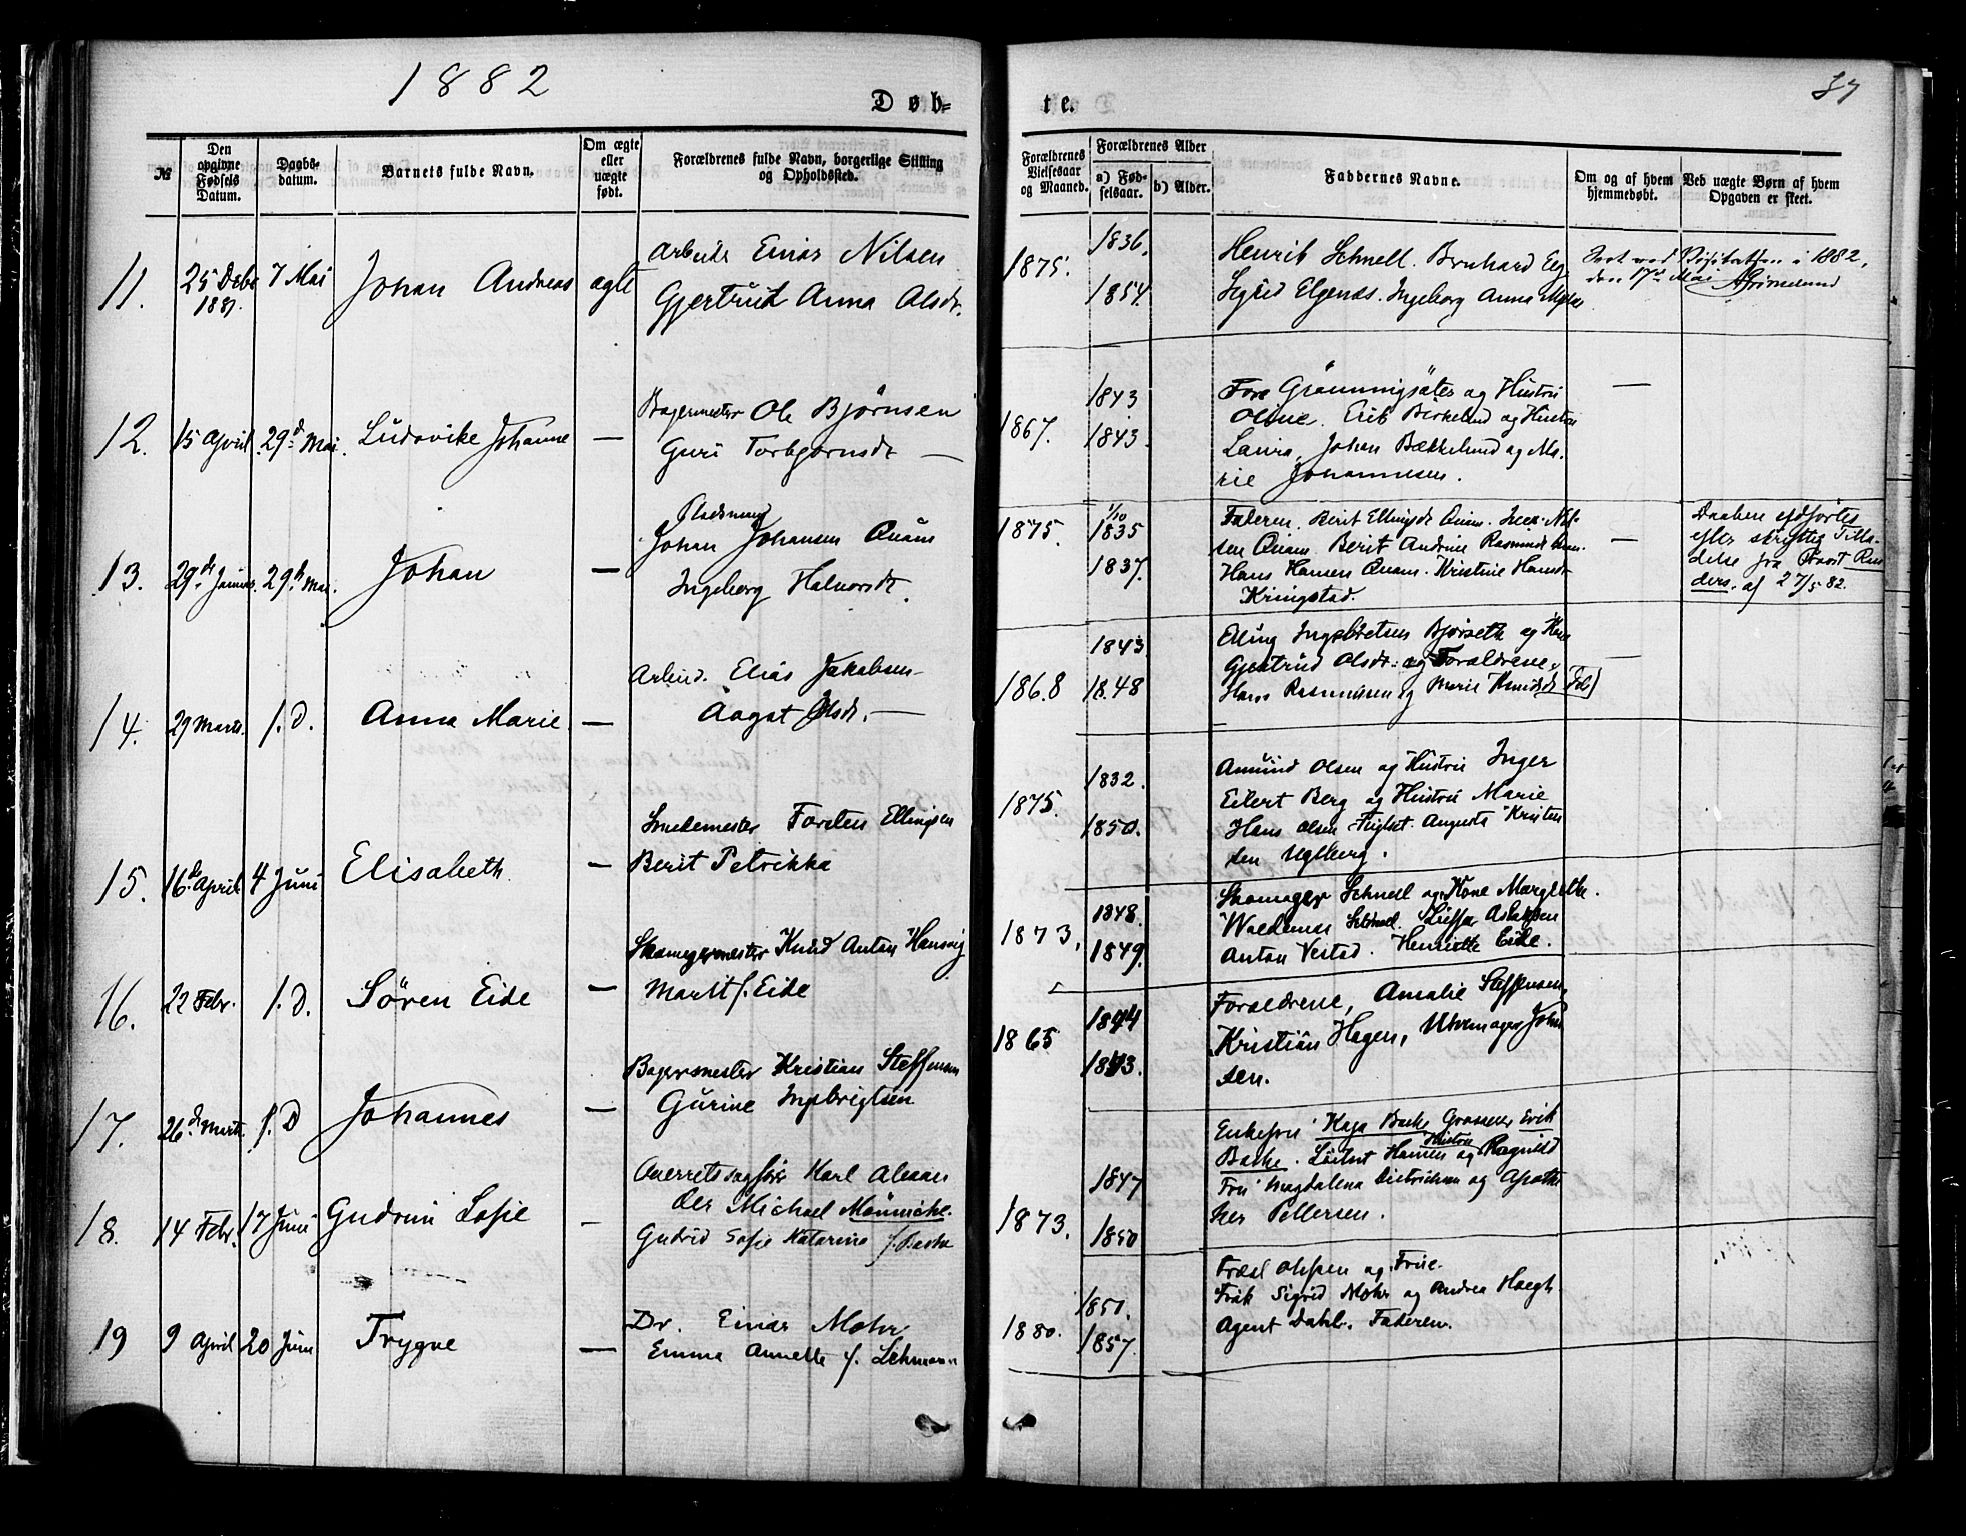 1882
Døb=
te.
37
№
Den opgivne Fødsels Datum.
Daabs-datum.
Barnets fulde Navn.
Om ægte eller uægte født.
Forældrenes fulde Navn, borgerlige Stilling og Opholdssted.
Forældrenes Vielsesaar og Maaned.
Forældrenes Alder
a) Fødselsaar.
b) Alder.
Faddernes Navne.
Om og af hvem hjemmedøbt.
Ved uægte Børn af hvem Opgaven er skeet.
11. 25 Debr 1881. 7 Mai Johan Andreas ægte
Arbeider Einar Nilsen
Gjertrud Anna Olsdr.
1875. 1836. 1854.
Henrik Schnell. Bernhard
Sigrid Elgenæs. Ingeborg Anna
Seet ved Visitatsen i 1882,
den 17de Mai Grimelund
12. 15 April 29d Mai. Ludovike Johanne —
Bagermester Ole Bjørnsen
Guri Torbjørnsdr —
1867. 1843 1843.
Grønningsæter og Hustru
Oline. Erik Birkelund og Hustru
Laura, Johan Bækkelund og Ma-
rie Johannesen.
—
13. 29de Januar. 29de Mai. Johan —
Pladsmand
Johan Johansen Quam
Ingeborg Halvorsdr.
1875. 1/10 1835 1837.
Faderen. Berit Ellingsdr Quam. Nil-
sen Quam. Berit Andrine Rasmusdr
Hans Hansen Quam. Kristine Hansdr
Kringstad.
—
Daaben udførtes
efter skriftlig Tilla-
delse fra Provst Ran-
ders. af 27/5 82.
14. 29 Marts. s. D. Anna Marie —
Arbeid. Elias Jakobsen
Aagot Olsdr. —
1868 1843 1848
Elling Ingebretsen Bjørseth og Kone
Gjertrud Olsdr. og Forældrene.
Hans Rasmussen og Marie Knudsdr
—
15. 16de April 4 Juni Elisabeth —
Smedemester Torsten Ellingsen
Berit Petrikka
1875. 1832. 1850.
Amund Olsen og Hustru Inger
Eilert Berg og Hustru Marie
Hans Olsen Augusta Kristen
sen Uglberg.
16. 22 Febr. s. D. Søren Eide —
Skomagermester Knud Anton Hansvig
Marit f. Eide
1873, 1848. 1849.
Skomager Schnell og Kone Margrethe.
Waldemar Schnell. Aslaksen
Anton Vestad. Henriette Eide.
17. 26de Marts. s. D Johannes —
Bagermester Kristian Steffensen
Gurine Ingebrigtsen
1865 1844 1843.
Forældrene, Amalie Steffensen,
Kristian Hagen, Uhrmager John
sen.
18. 14 Febr. 17 Juni Gudrun Sofie —
Overretssagfører Karl Alexan
der Michael Mønniche.
Gudrid Sofie Katarina f. Backe
1873. 1847 1850
Enkefru Kaja Backe Grosserer Erik
Backe. Løitnt Hansen og Hustru Ragnhild
Fru Magdalena Dietrichson og Apothe
ker Pettersen.
19 9 April 20 Juni Trygve —
Dr. Einar Mohr
Emma Annette f. Lehmann
1880. 1851. 1857.
og Frue.
Frøk Sigrid Mohr og Andrea Hoegh
Agent Dahl. Faderen.